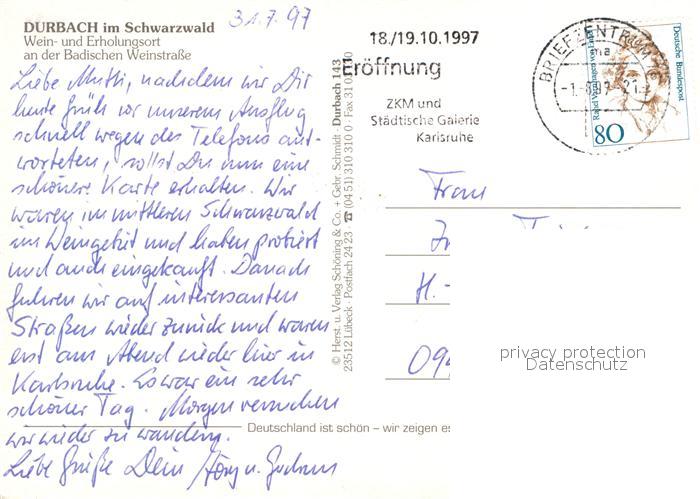 DURBACH im Schwarzwald
Wein- und Erholungsort
an der Badischen Weinstraße
31.7.97
Liebe Mutti, nachdem wir Dir
heute früh vor unserem Ausflug
schnell wegen des Telefons ant-
worteten, sollst Du nun eine
schönere Karte erhalten. Wir
waren im mittleren Schwarzwald
im Weingebiet und haben probiert
und auch eingekauft. Danach
fuhren wir auf interessanten
Straßen wieder zurück und waren
erst am Abend wieder hier in
Karlsruhe. Es war ein sehr
schöner Tag. Morgen versuchen
wir wieder zu wandern.
Liebe Grüße Dein Jörg u. Gudrun
© Herst. u. Verlag Schöning & Co. + Gebr. Schmidt · Durbach 143
23512 Lübeck · Postfach 24 23 · ☎ (04 51) 310 310 0 · Fax 31 0
18./19.10.1997
Eröffnung
ZKM und
Städtische Galerie
Karlsruhe
BRIEFZENTRUM
Deutsche Bundespost
80
Frau
H.-
09
privacy protection
Datenschutz
Deutschland ist schön – wir zeigen es